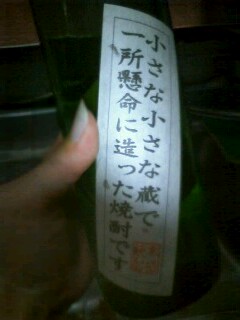 小さな小さな蔵で
一所懸命に造った焼酎です